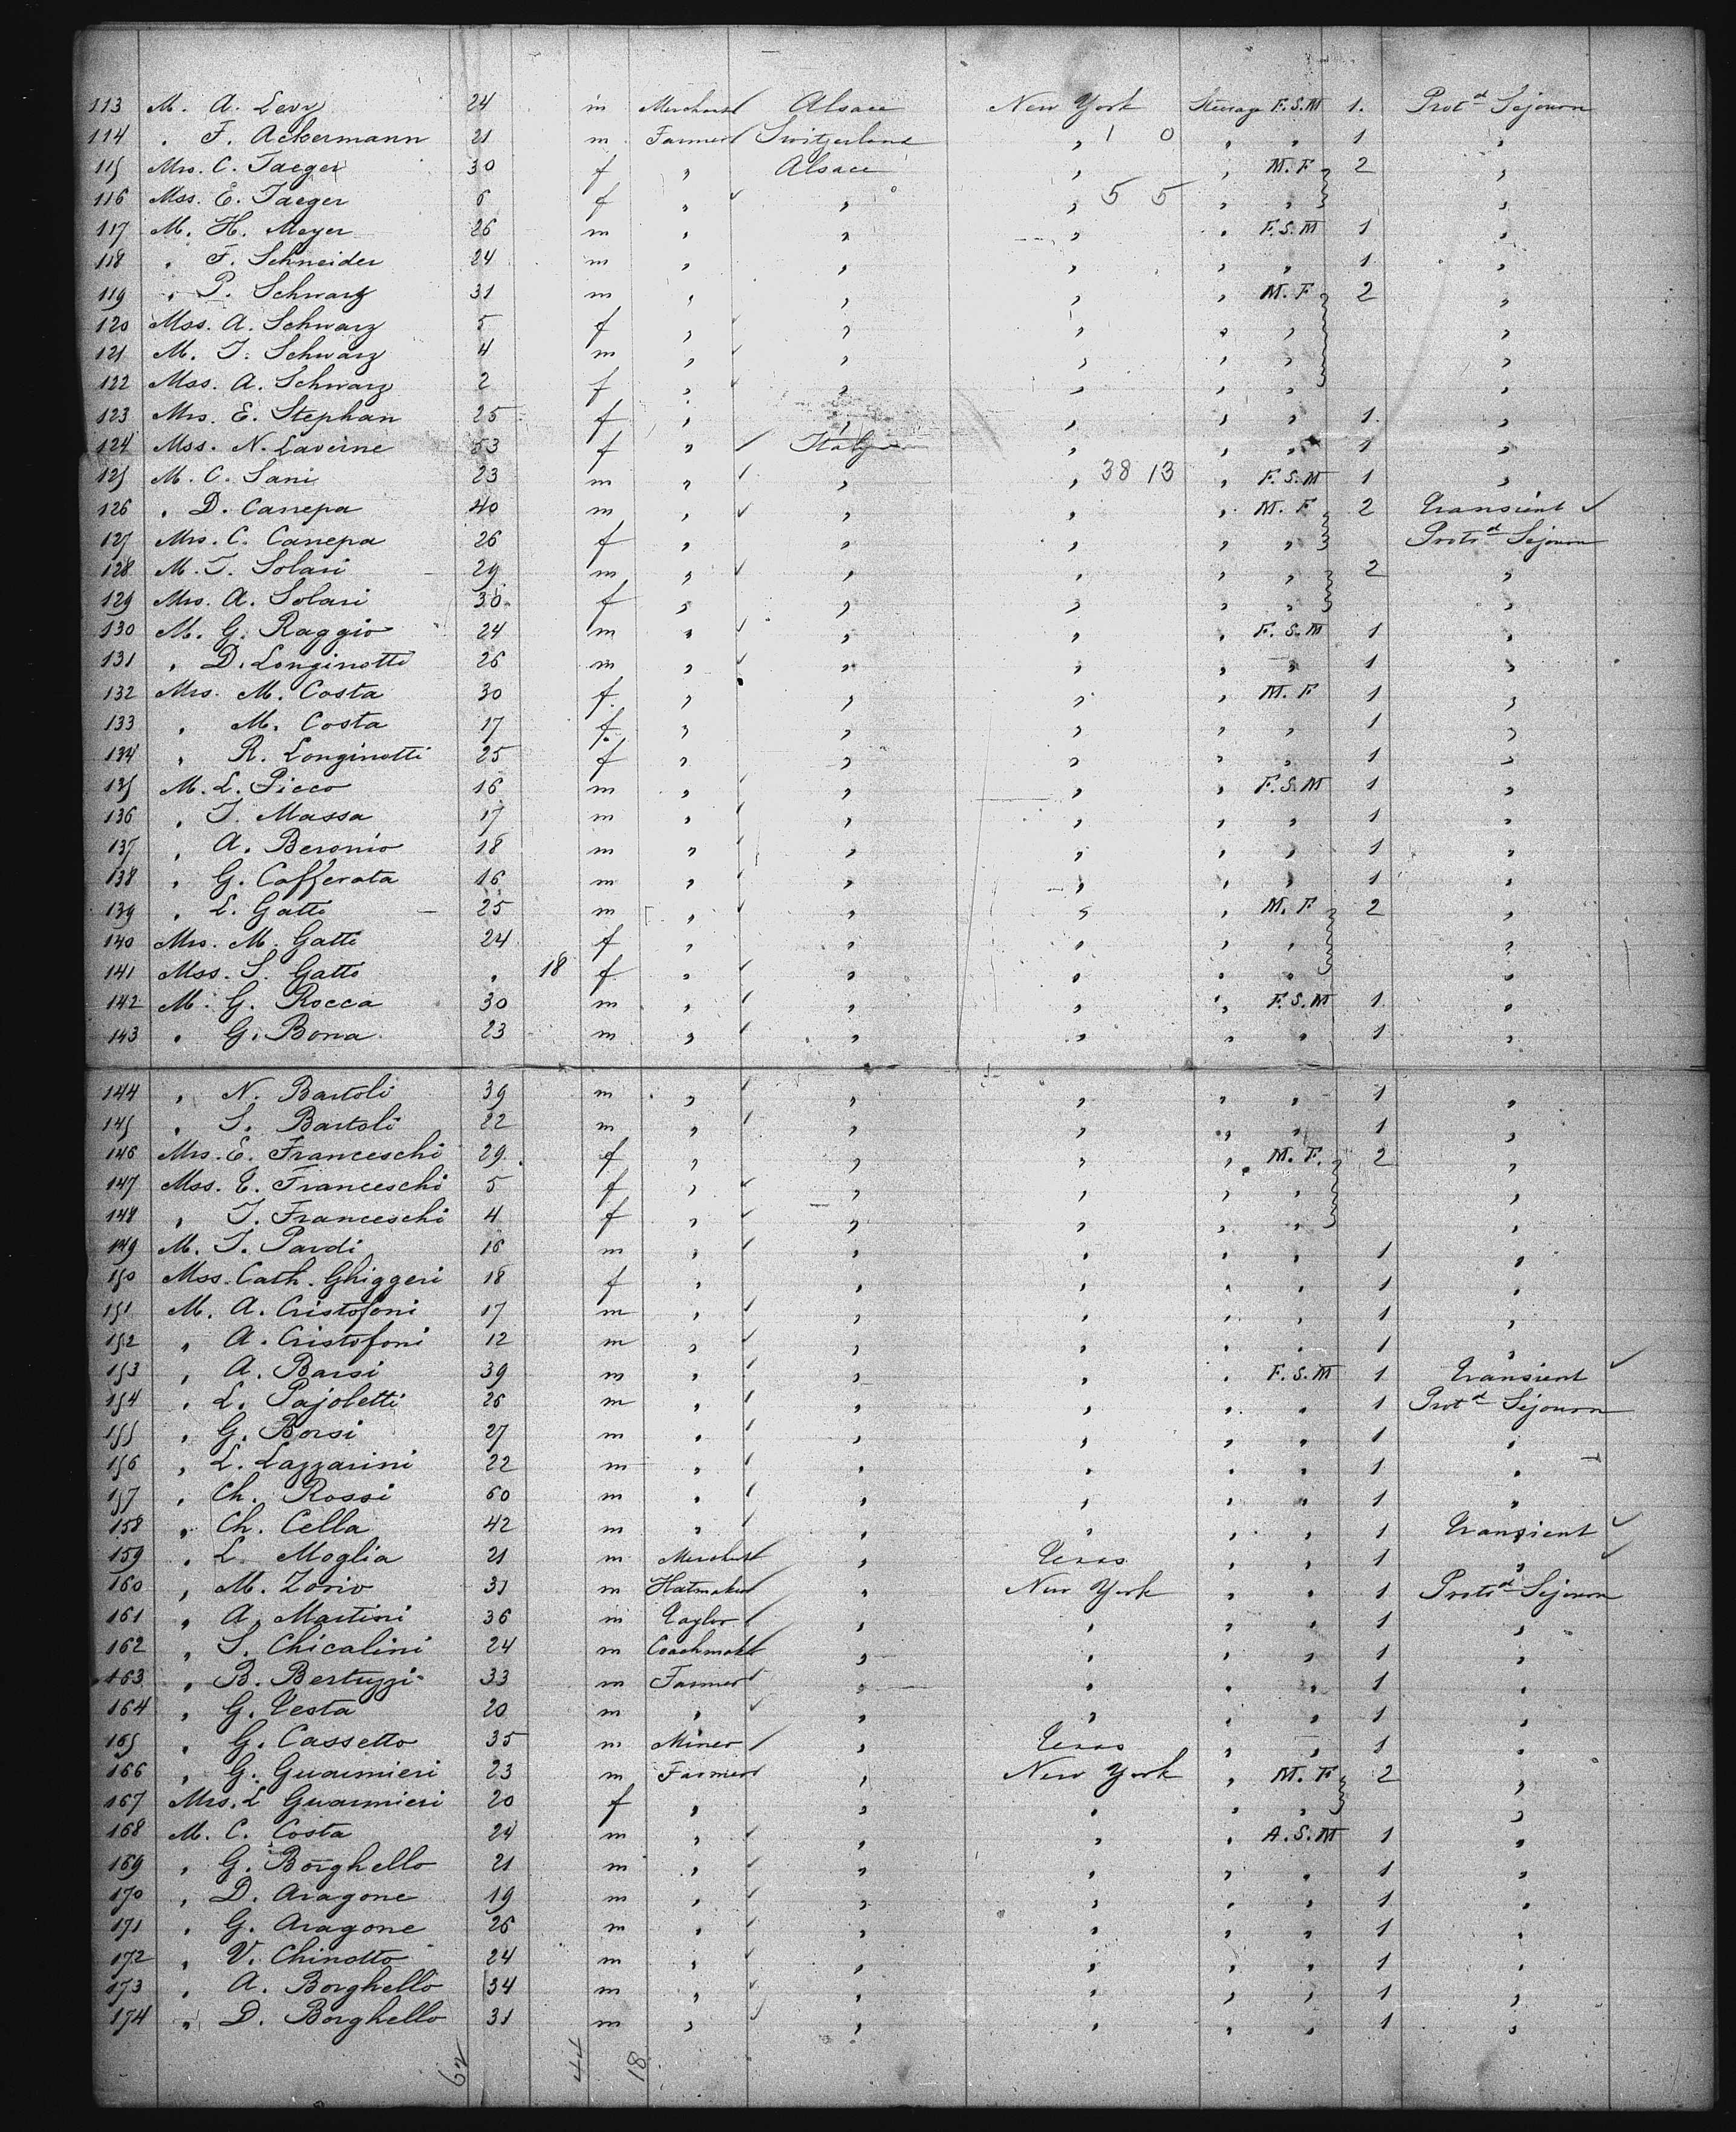 113 M. A. Levy 24 m Merchant Alsace New York Steerage F.S.M 1. Prot.d Sejourn
114 " F. Ackermann 21 m Farmer Switzerland " 1 0 " " 1 "
115 Mrs. C. Jaeger 30 f " Alsace " " M.F 2 "
116 Mss. E. Jaeger 6 f " " " 5 5 " " "
117 M. H. Meyer 26 m " " " " F.S.M 1 "
118 " F. Schneider 24 m " " " " " 1 "
119 " P. Schwarz 31 m " " " " M.F 2 "
120 Mss. A. Schwarz 5 f " " " " " "
121 M. J. Schwarz 4 m " " " " " "
122 Mss. A. Schwarz 2 f " " " " " "
123 Mrs. E. Stephan 25 f " " " " " 1. "
124 Mss. N. Laverne 53 f " Italy " " " 1 "
125 M. C. Sani 23 m " " " 38 13 " F.S.M 1 "
126 " D. Canepa 40 m " " " " M.F 2 transient
127 Mrs. C. Canepa 26 f " " " " " Protr.d Sejourn
128 M. J. Solari 29 m " " " " " 2 "
129 Mrs. A. Solari 30 f " " " " " "
130 M. G. Raggio 24 m " " " " F.S.M 1 "
131 " D. Longinotti 26 m " " " " " 1 "
132 Mrs. M. Costa 30 f. " " " " M.F 1 "
133 " M. Costa 17 f. " " " " " 1 "
134 " R. Longinotti 25 f " " " " " 1 "
135 M. L. Picco 16 m " " " " F.S.M 1 "
136 " J. Massa 17 m " " " " " 1 "
137 " A. Beronio 18 m " " " " " 1 "
138 " G. Cafferata 16 m " " " " " 1 "
139 " L. Gatti 25 m " " " " M.F 2 "
140 Mrs. M. Gatti 24 f " " " " " "
141 Mss. S. Gatti " 18 f " " " " " "
142 M. G. Rocca 30 m " " " " F.S.M 1 "
143 " G. Bona 23 m " " " " " 1 "
144 " N. Bartoli 39 m " " " " " 1 "
145 " S. Bartoli 22 m " " " " " 1 "
146 Mrs. E. Franceschi 29 f " " " " M.F. 2 "
147 Mss. E. Franceschi 5 f " " " " " "
148 " J. Franceschi 4 f " " " " " "
149 M. J. Pardi 16 m " " " " " 1 "
150 Mss. Cath. Ghiggeri 18 f " " " " " 1 "
151 M. A. Cristofoni 17 m " " " " " 1 "
152 " A. Cristofoni 12 m " " " " " 1 "
153 " A. Barsi 39 m " " " " F.S.M 1 transient
154 " L. Pajoletti 26 m " " " " " 1 Prot.d Sejourn
155 " G. Borsi 27 m " " " " " 1 "
156 " L. Lazzarini 22 m " " " " " 1 "
157 " Ch. Rossi 60 m " " " " " 1 "
158 " Ch. Cella 42 m " " " " " 1 transient
159 " L. Moglia 21 m Merchant " Texas " " 1 "
160 " M. Zorio 31 m Hatmaker " New York " " 1 Protr.d Sejourn
161 " A. Martini 36 m Taylor " " " " 1 "
162 " S. Chicalini 24 m Coachmaker " " " " 1 "
163 " B. Bertuzzi 33 m Farmer " " " " 1 "
164 " G. Testa 20 m " " " " " 1 "
165 " G. Cassetto 35 m Miner " Texas " " 1 "
166 " G. Guarnieri 23 m Farmer " New York " M.F 2 "
167 Mrs. L Guarnieri 20 f " " " " " "
168 M. C. Costa 24 m " " " " A.S.M 1 "
169 " G. Borghello 21 m " " " " " 1 "
170 " D. Aragone 19 m " " " " " 1 "
171 " G. Aragone 26 m " " " " " 1 "
172 " V. Chinotto 24 m " " " " " 1 "
173 " A. Borghello 34 m " " " " " 1 "
174 " D. Borghello 31 m " " " " " 1 "
62 44 18